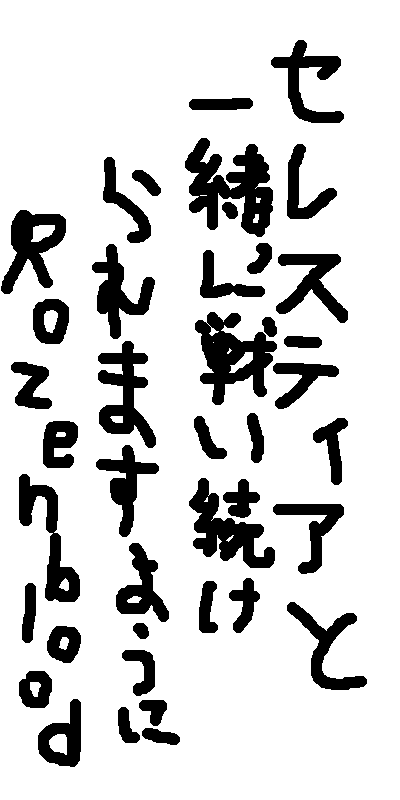 セレスティアと
一緒に戦い続け
られますように
Rozenblood